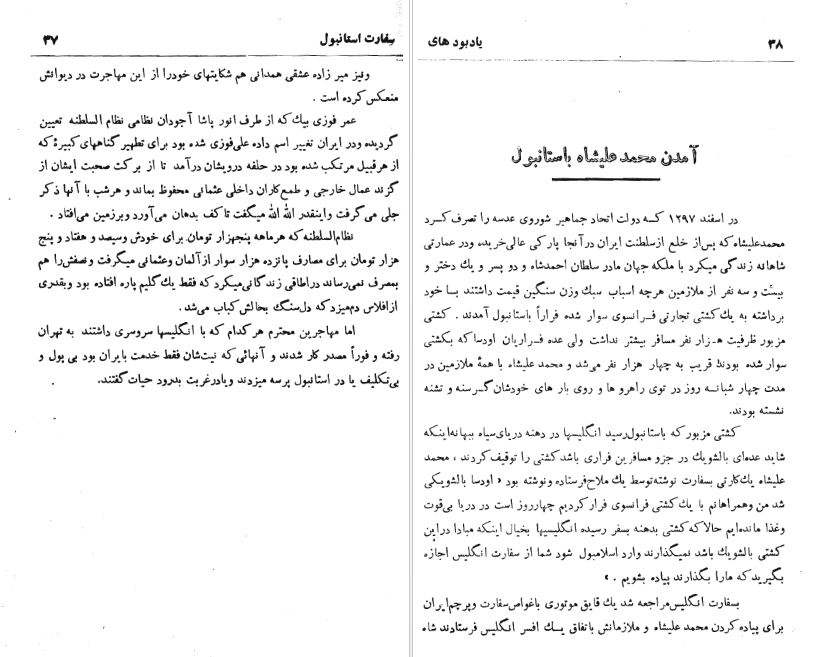 سفارت استانبول
۳۷
ونیز میر زاده عشقی همدانی هم شکایتهای خودرا از این مهاجرت در دیوانش
منعکس کرده است .
عمر فوزی بیك که از طرف انور پاشا آجودان نظامی نظام السلطنه تعیین
گردیده ودر ایران تغییر اسم داده علی‌فوزی شده بود برای تطهیر گناههای کبیرهٔ که
از هرقبیل مرتکب شده بود در حلقه درویشان درآمد تا از برکت صحبت ایشان از
گزند عمال خارجی و طمع‌کاران داخلی عثمانی محفوظ بماند و هرشب با آنها ذکر
جلی می‌گرفت واینقدر الله الله میگفت تاکف بدهان می‌آورد وبرزمین می‌افتاد .
نظام‌السلطنه که هرماهه پنجهزار تومان برای خودش وسیصد و هفتاد و پنج
هزار تومان برای مصارف پانزده هزار سوار ازآلمان وعثمانی میگرفت ونصفش‌را هم
بمصرف نمی‌رساند دراطاقی زندگانی‌میکرد که فقط یك گلیم پاره افتاده بود وبقدری
ازافلاس دم‌میزد که دل‌سنگ بحالش کباب می‌شد .
اما مهاجرین محترم هرکدام که با انگلیسها سروسری داشتند به تهران
رفته و فوراً مصدر کار شدند و آنهائی که نیت‌شان فقط خدمت بایران بود بی پول و
بی‌تکلیف یا در استانبول پرسه میزدند ویادرغربت بدرود حیات گفتند.
۳۸
یادبود های
آمدن محمد علیشاه باستانبول
در اسفند ۱۲۹۷ کسه دولت اتحاد جماهیر شوروی عدسه را تصرف کرد
محمدعلیشاه که پس‌از خلع ازسلطنت ایران درآنجا پارکی عالی‌خریده ودر عمارتی
شاهانه زندگی میکرد با ملکه جهان مادر سلطان احمدشاه و دو پسر و یك دختر و
بیست و سه نفر از ملازمین هرچه اسباب سبك وزن سنگین قیمت داشتند بسا خود
برداشته به یك کشتی تجارتی فرانسوی سوار شده فراراً باستانبول آمدند . کشتی
مزبور ظرفیت هـزار نفر مسافر بیشتر نداشت ولی عده فراریان اودسا که بکشتی
سوار شده بودند قریب به چهار هزار نفر می‌شد و محمد علیشاه با همهٔ ملازمین در
مدت چهار شبانه روز در توی راهرو ها و روی بار های خودشان گرسنه و تشنه
نشسته بودند.
کشتی مزبور که باستانبول‌رسید انگلیسها در دهنه دریای‌سیاه ببهانه‌اینکه
شاید عده‌ای بالشویك در جزو مسافرین فراری باشد کشتی را توقیف کردند ، محمد
علیشاه یك‌کارتی بسفارت نوشته‌توسط یك ملاح‌فرستاده ونوشته بود « اودسا بالشویکی
شد من وهمراهانم با یك‌کشتی فرانسوی فرار کردیم چهارروز است در دریا بی‌قوت
وغذا مانده‌ایم حالا که کشتی بدهنه بسفر رسیده انگلیسیها بخیال اینکه مبادا دراین
کشتی بالشویك باشد نمیگذارند وارد اسلامبول شود شما از سفارت انگلیس اجازه
بگیرید که مارا بگذارند پیاده بشویم . »
بسفارت انگلیس‌مراجعه شد یك قایق موتوری باغواص‌سفارت وپرچم‌ایران
برای پیاده کردن محمد علیشاه و ملازمانش باتفاق یـك افسر انگلیس فرستادند شاه